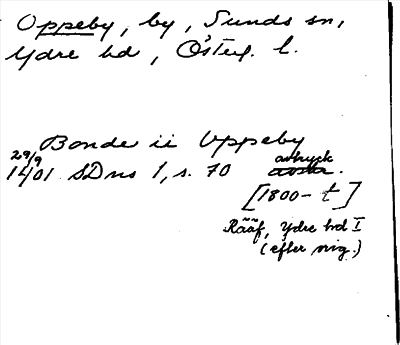 Oppeby, by, Sunds sn,
Ydre hd, Österg. l.
Bonde ii Uppeby
29/9
1401 SDns 1, s. 70 avtryck
avskr.
[1800-t]
Rääf, Ydre hd I
(efter orig.)